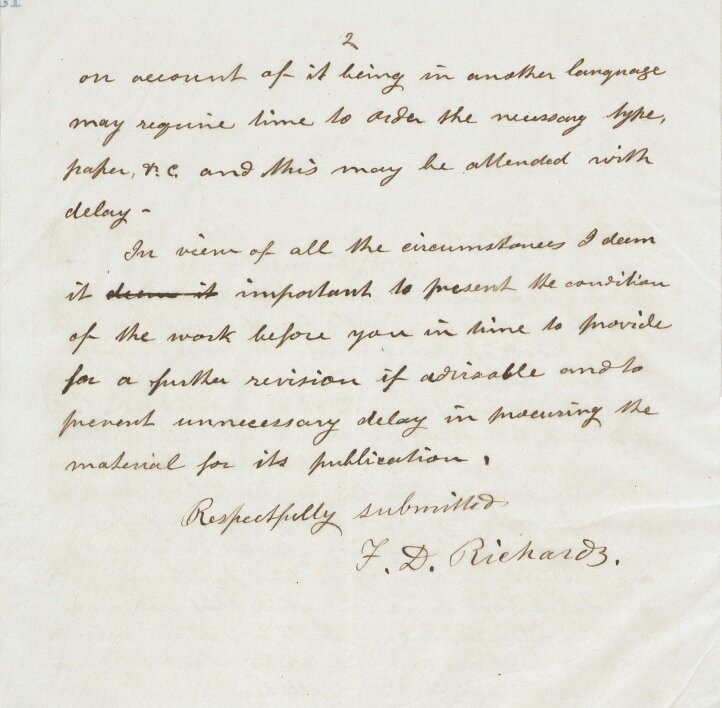 2
on account of it being in another language
may require time to order the necessary type,
paper, &.c. and this may be attended with
delay -
In view of all the circumstances I deem
it deem it important to present the condition
of the work before you in time to provide
for a further revision if advisable and to
prevent unnecessary delay in procuring the
material for its publication.
Respectfully submitted
F. D. Richards.